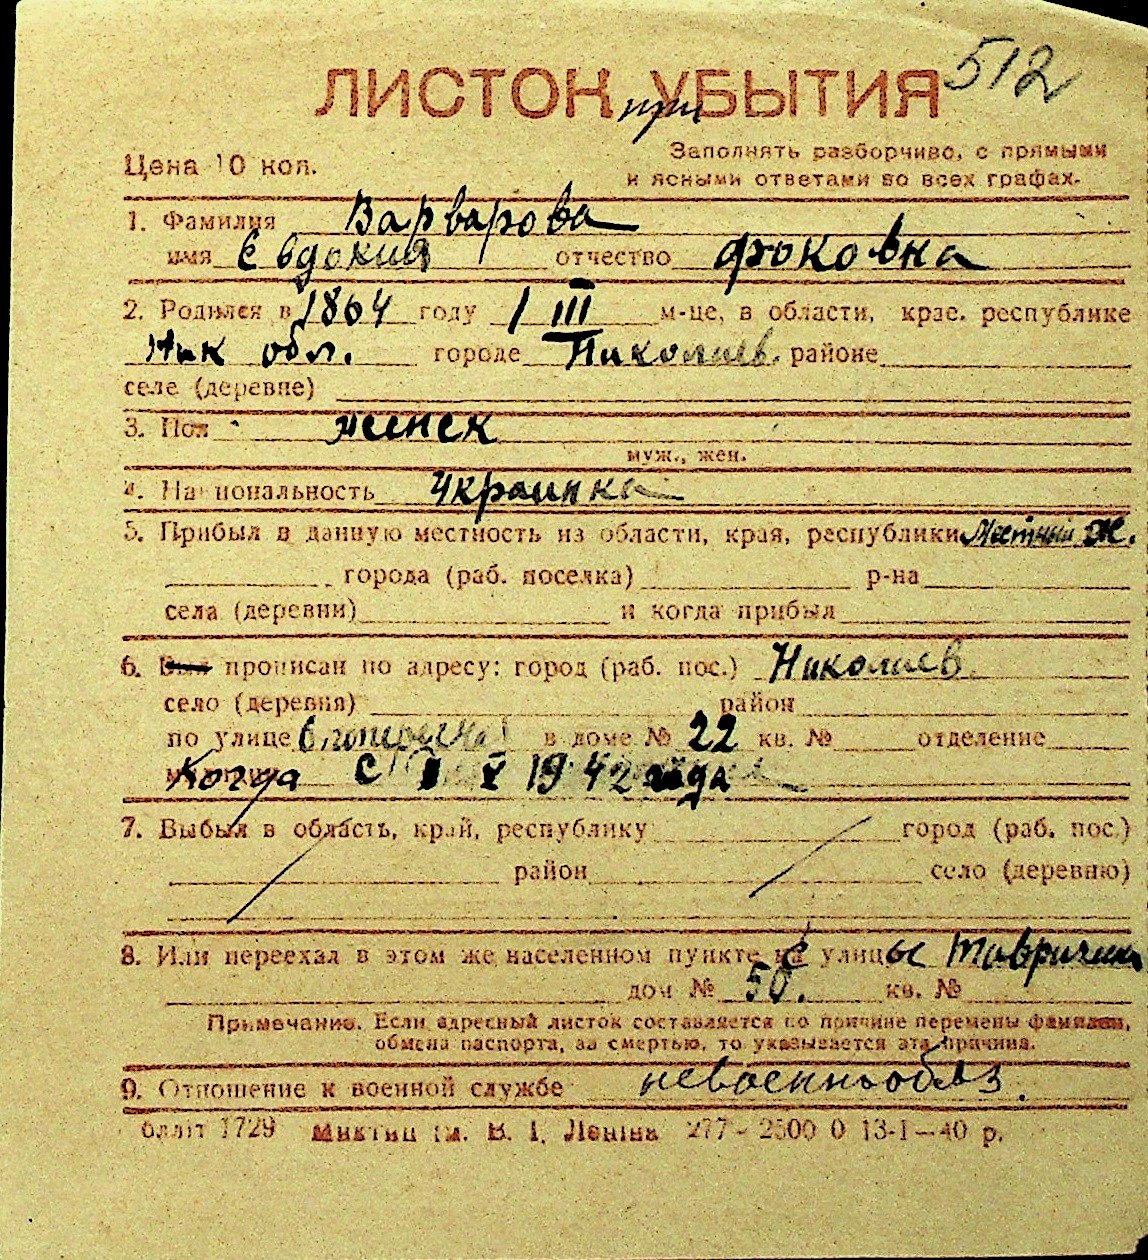 512
ЛИСТОК при УБЫТИЯ
Цена 10 коп.
Заполнять разборчиво, с прямыми
и ясными ответами во всех графах.
1. Фамилия Варварова
имя Евдокия отчество Фоковна
2. Родился в 1864 году 1 III м-це, в области, крае, республике
Ник обл. городе Николаев районе
селе (деревне)
3. Пол женск
муж., жен.
4. Национальность Украинка
5. Прибыл в данную местность из области, края, республики Местный ж.
города (раб. поселка) р-на
села (деревни) и когда прибыл
6. Был прописан по адресу: город (раб. пос.) Николаев
село (деревня) район
по улице в доме № 22 кв. № отделение
Когда с 1 V 1942 года
7. Выбыл в область, край, республику город (раб. пос.)
район село (деревню)
8. Или переехал в этом же населенном пункте с улицы
дом № 50. кв. №
Примечание. Если адресный листок составляется по причине перемены фамилии,
обмена паспорта, за смертью, то указывается эта причина.
9. Отношение к военной службе невоеннообяз.
1729 ім. В. І. Леніна 277-2500 0 13-I-40 р.